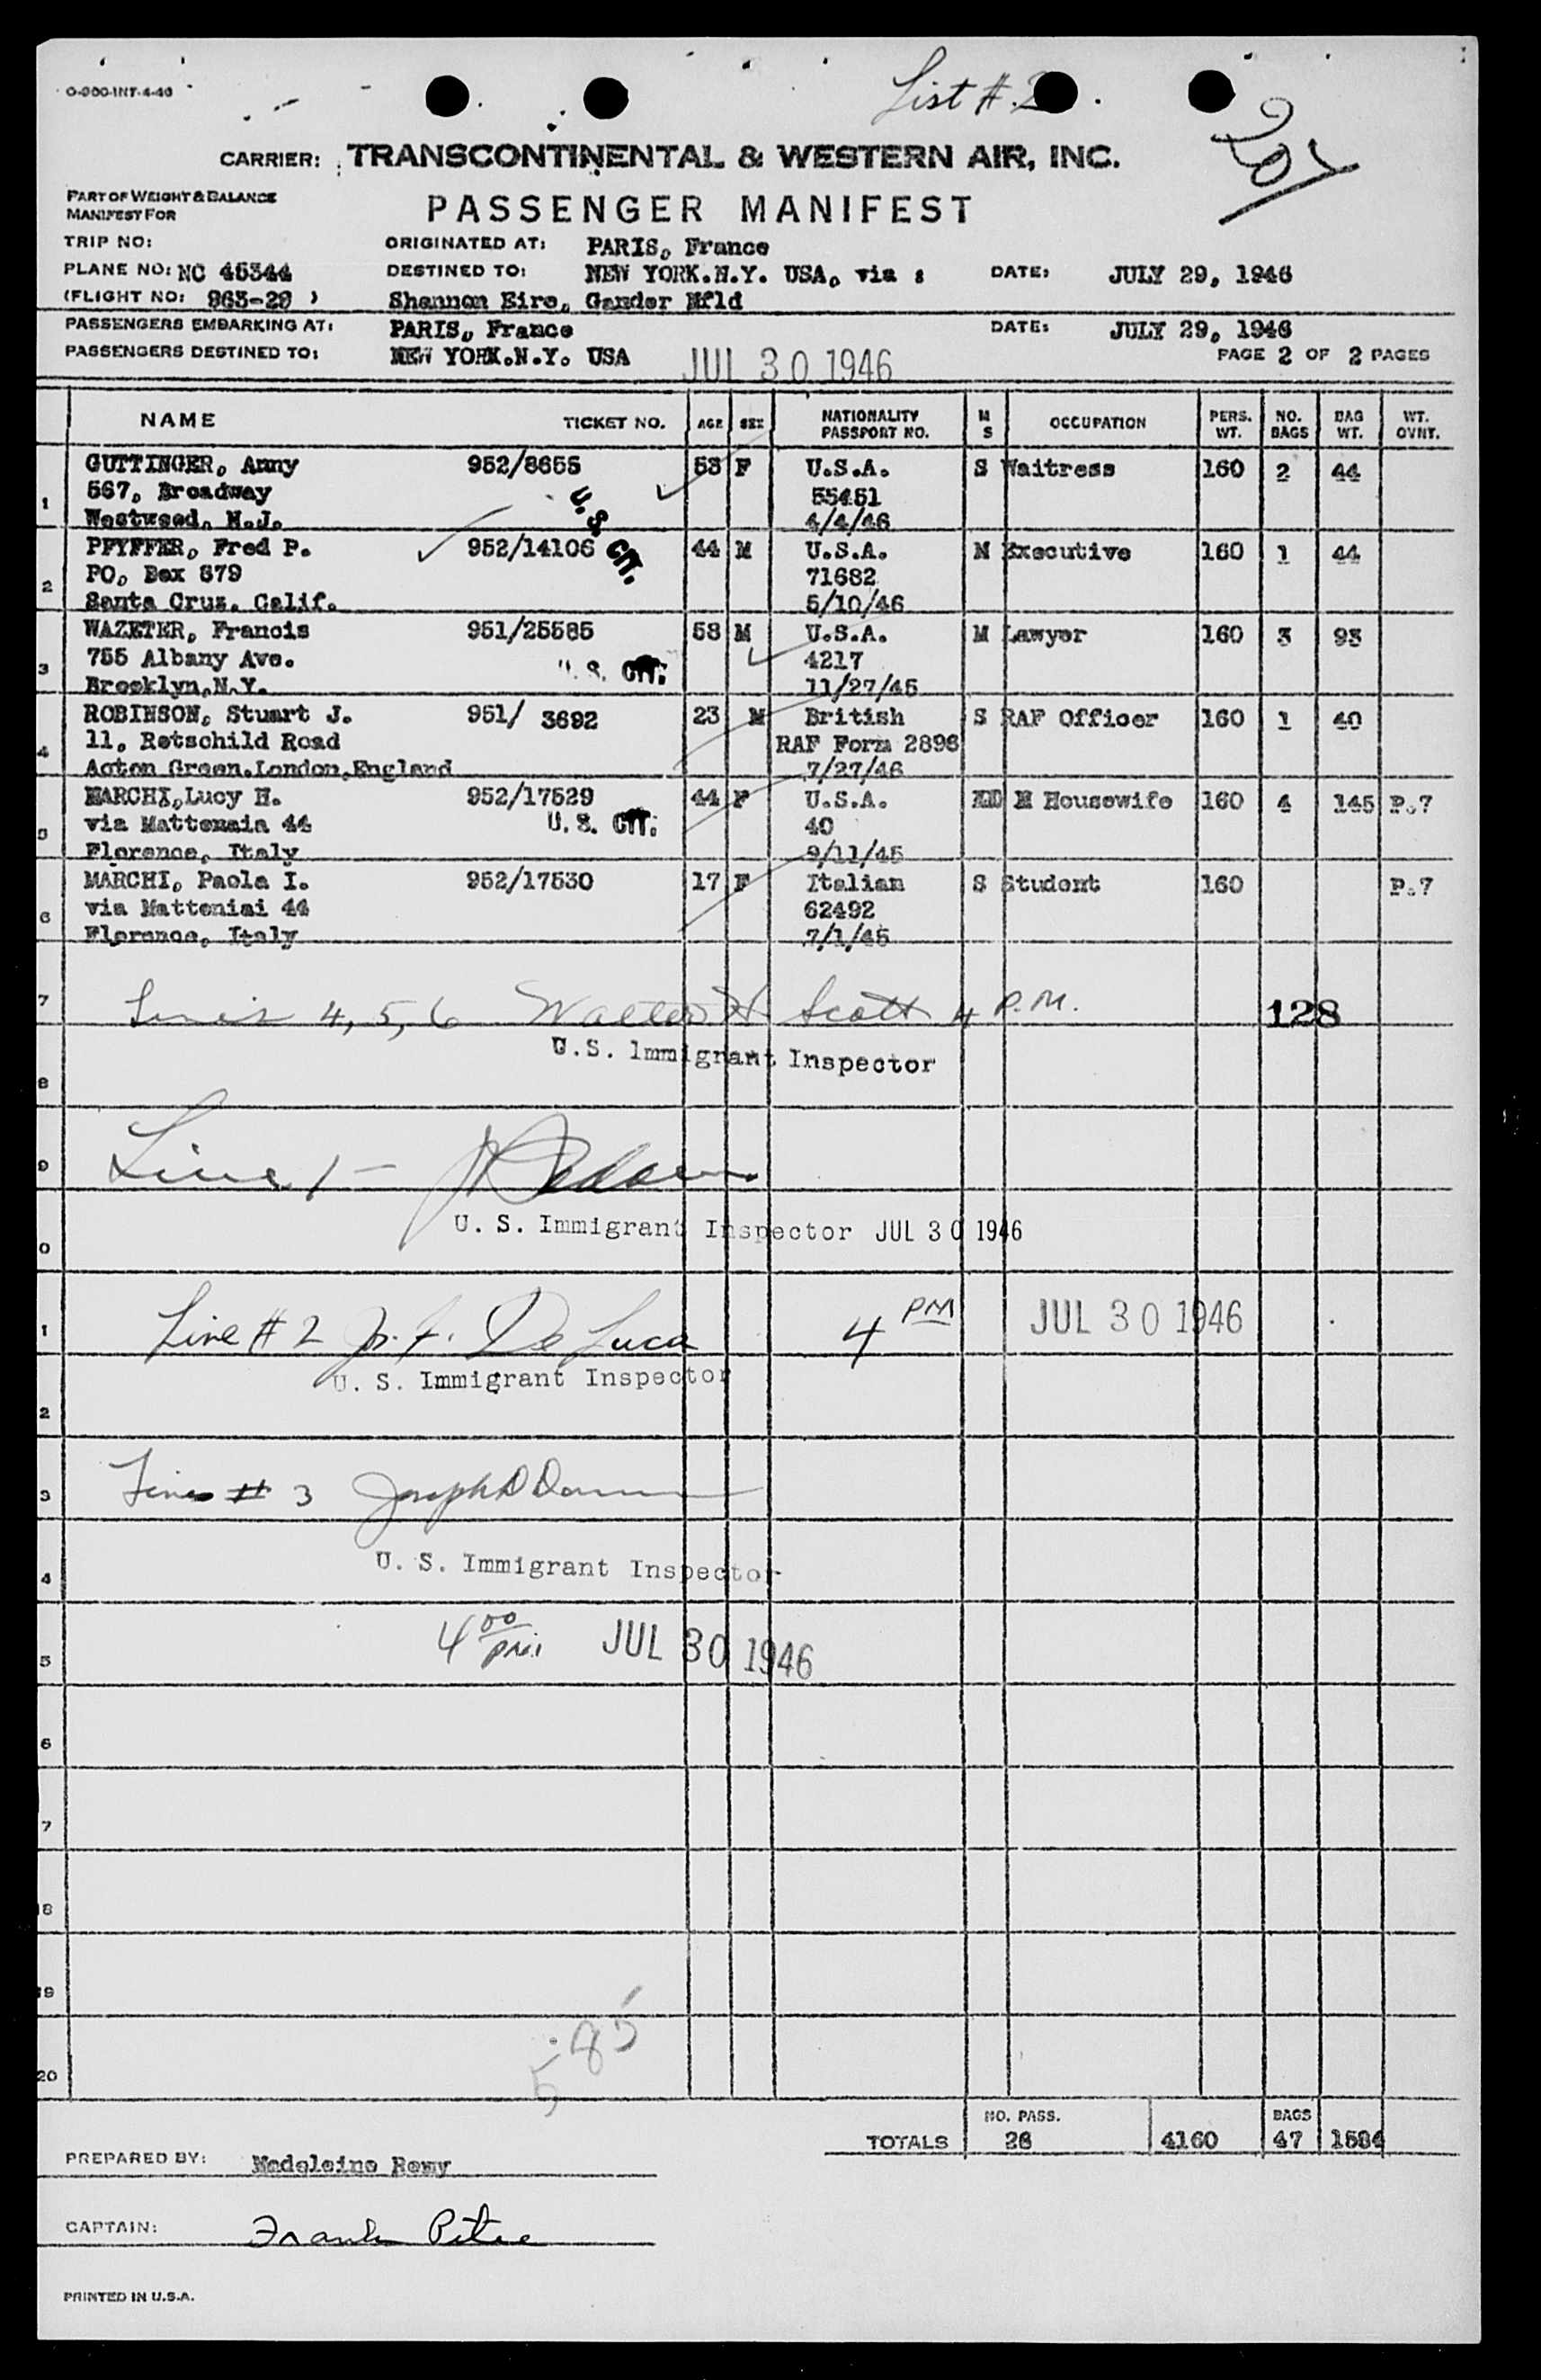 O-900-INT-4-46
List #.2
CARRIER: TRANSCONTINENTAL & WESTERN AIR, INC.
PART OF WEIGHT & BALANCE
MANIFEST FOR
PASSENGER MANIFEST
TRIP NO: ORIGINATED AT: PARIS, France
PLANE NO: NC 45344 DESTINED TO: NEW YORK.N.Y. USA, via : DATE: JULY 29, 1946
(FLIGHT NO: 963-29 ) Shannon Eire, Gander Nfld
PASSENGERS EMBARKING AT: PARIS, France DATE: JULY 29, 1946
PASSENGERS DESTINED TO: NEW YORK.N.Y. USA JUL 30 1946 PAGE 2 OF 2 PAGES
NAME TICKET NO. AGE SEX NATIONALITY PASSPORT NO. M S OCCUPATION PERS. WT. NO. BAGS BAG WT. WT. OVNT.
GUTTINGER, Anny 952/8655 53 F U.S.A. S Waitress 160 2 44
1 567, Broadway U.S. CIT. 55451
Westwood. N.J. 4/4/46
PFYFFER, Fred P. 952/14106 44 M U.S.A. M Executive 160 1 44
2 PO, Box 879 71682
Santa Cruz. Calif. 5/10/46
WAZETER, Francis 951/25585 58 M U.S.A. M Lawyer 160 3 93
3 755 Albany Ave. U.S. CIT. 4217
Brooklyn,N.Y. 11/27/45
ROBINSON, Stuart J. 951/ 3692 23 M British S RAF Officer 160 1 40
4 11, Rotschild Road RAF Form 2896
Acton Green.London,England 7/27/46
MARCHI,Lucy H. 952/17529 44 F U.S.A. M Housewife 160 4 145 P.7
5 via Mattonaia 44 U.S. CIT. 40
Florence, Italy 9/11/45
MARCHI, Paola I. 952/17530 17 F Italian S Student 160 P.7
6 via Matteniai 44 62492
Florence, Italy 7/1/45
7 Lines 4, 5, 6 Walter H Scott 4 P.M. 128
U.S. Immigrant Inspector
8
9 Line 1 –
U. S. Immigrant Inspector JUL 30 1946
0
1 Line # 2 De Luca 4 PM JUL 30 1946
U. S. Immigrant Inspector
2
3 Lines # 3 Joseph D
U. S. Immigrant Inspector
4
5 4 00 pm JUL 30 1946
6
7
18
19
20
NO. PASS. BAGS
TOTALS 26 4160 47 1584
PREPARED BY: Madeleine Remy
CAPTAIN: Frank Petee
PRINTED IN U.S.A.